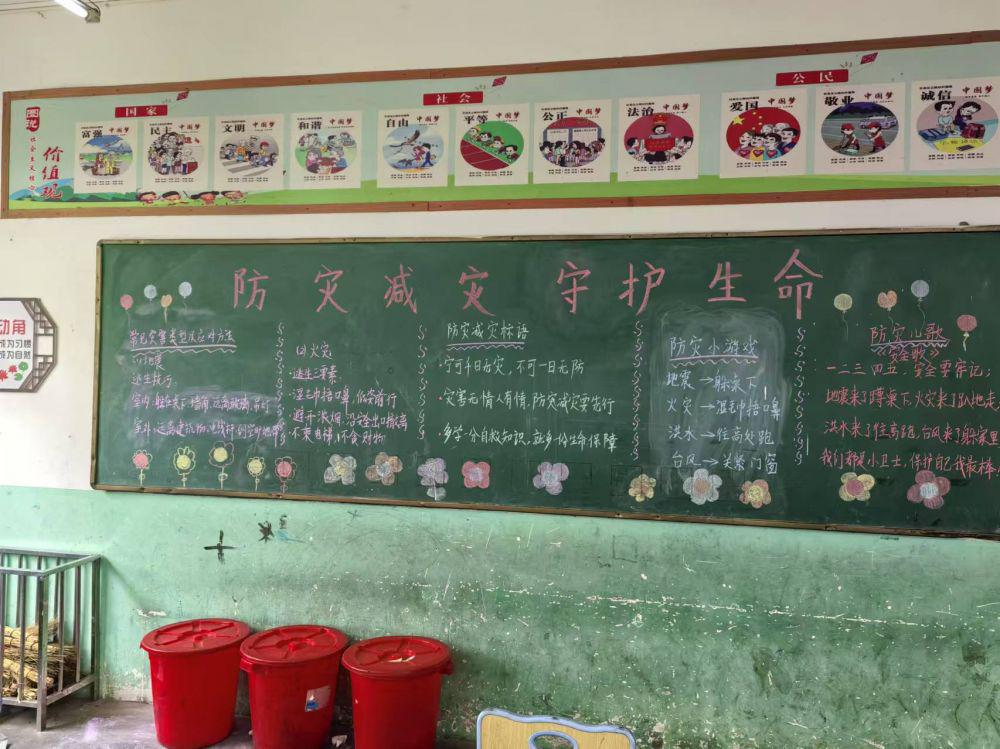 国家
社会
公民
图说
价值观
富强
中国梦
民主
中国梦
文明
中国梦
和谐
中国梦
自由
中国梦
平等
中国梦
公正
中国梦
法治
中国梦
爱国
中国梦
敬业
中国梦
诚信
中国梦
动角
成为习惯
成为自然
防灾减灾 守护生命
常见灾害类型及应对方法
地震
逃生技巧
火灾
逃生要素
湿毛巾捂口鼻,低姿前行
避开浓烟,沿安全出口撤离
不乘电梯,不贪财物
防灾减灾标语
·宁可千日无灾,不可一日无防
·灾害无情人有情,防灾减灾要先行
·多学一分自救知识,就多一份生命保障
防灾小游戏
地震→躲桌下
火灾→湿毛巾捂口鼻
洪水→往高处跑
台风→关紧门窗
防灾儿歌
《安全歌》
一二三四五,安全要牢记;
地震来了蹲桌下,火灾来了趴地走;
洪水来了往高跑,台风来了躲家里
我们都是小卫士,保护自己我最棒